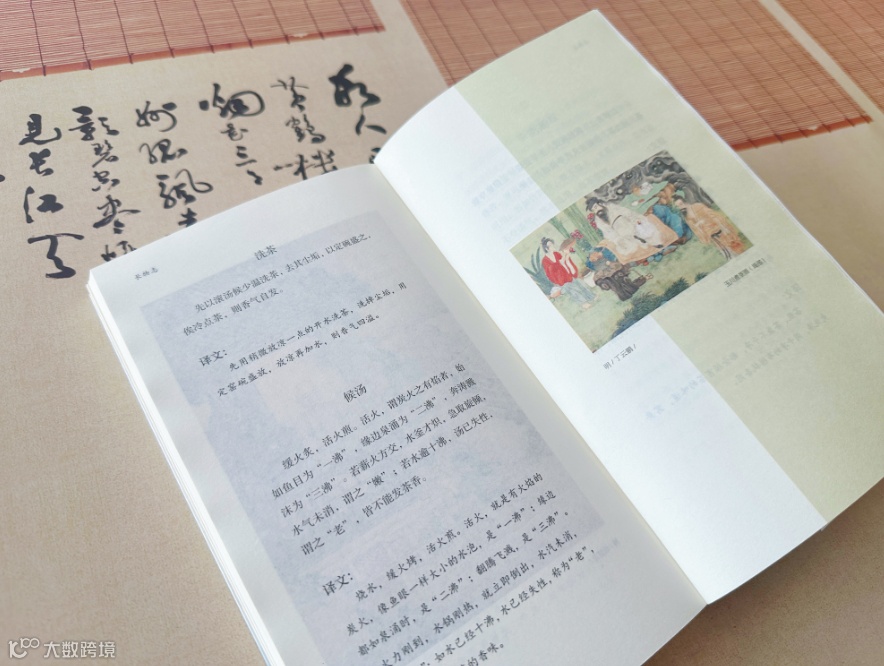 故人
黄鹤楼
烟花三
州 孤帆
影碧空尽
见长江天
长物志
洗茶
先以滚汤候少温洗茶，去其尘垢，以定碗盛之，
俟冷点茶，则香气自发。
译文：
先用稍微放凉一点的开水洗茶，洗掉尘垢，用
定窑碗盛放，放凉再加水，则香气四溢。
候汤
缓火炙，活火煎。活火，谓炭火之有焰者，始
如鱼目为“一沸”，缘边泉涌为“二沸”，奔涛溅
沫为“三沸”。若薪火方交，水釜才炽，急取旋倾，
水气未消，谓之“嫩”；若水逾十沸，汤已失性，
谓之“老”，皆不能发茶香。
译文：
烧水，缓火烤，活火煎。活火，就是有火焰的
炭火，像鱼眼一样大小的水泡，是“一沸”；缘边
都如泉涌时，是“二沸”；翻腾飞溅，是“三沸”。
火力刚到，水锅刚热，就立即倒出，水汽未消，
”，如水已经十沸，水已经失性，称为“老”，
的香味。
玉川煮茶图（局部）
明/丁云鹏/
大数跨境